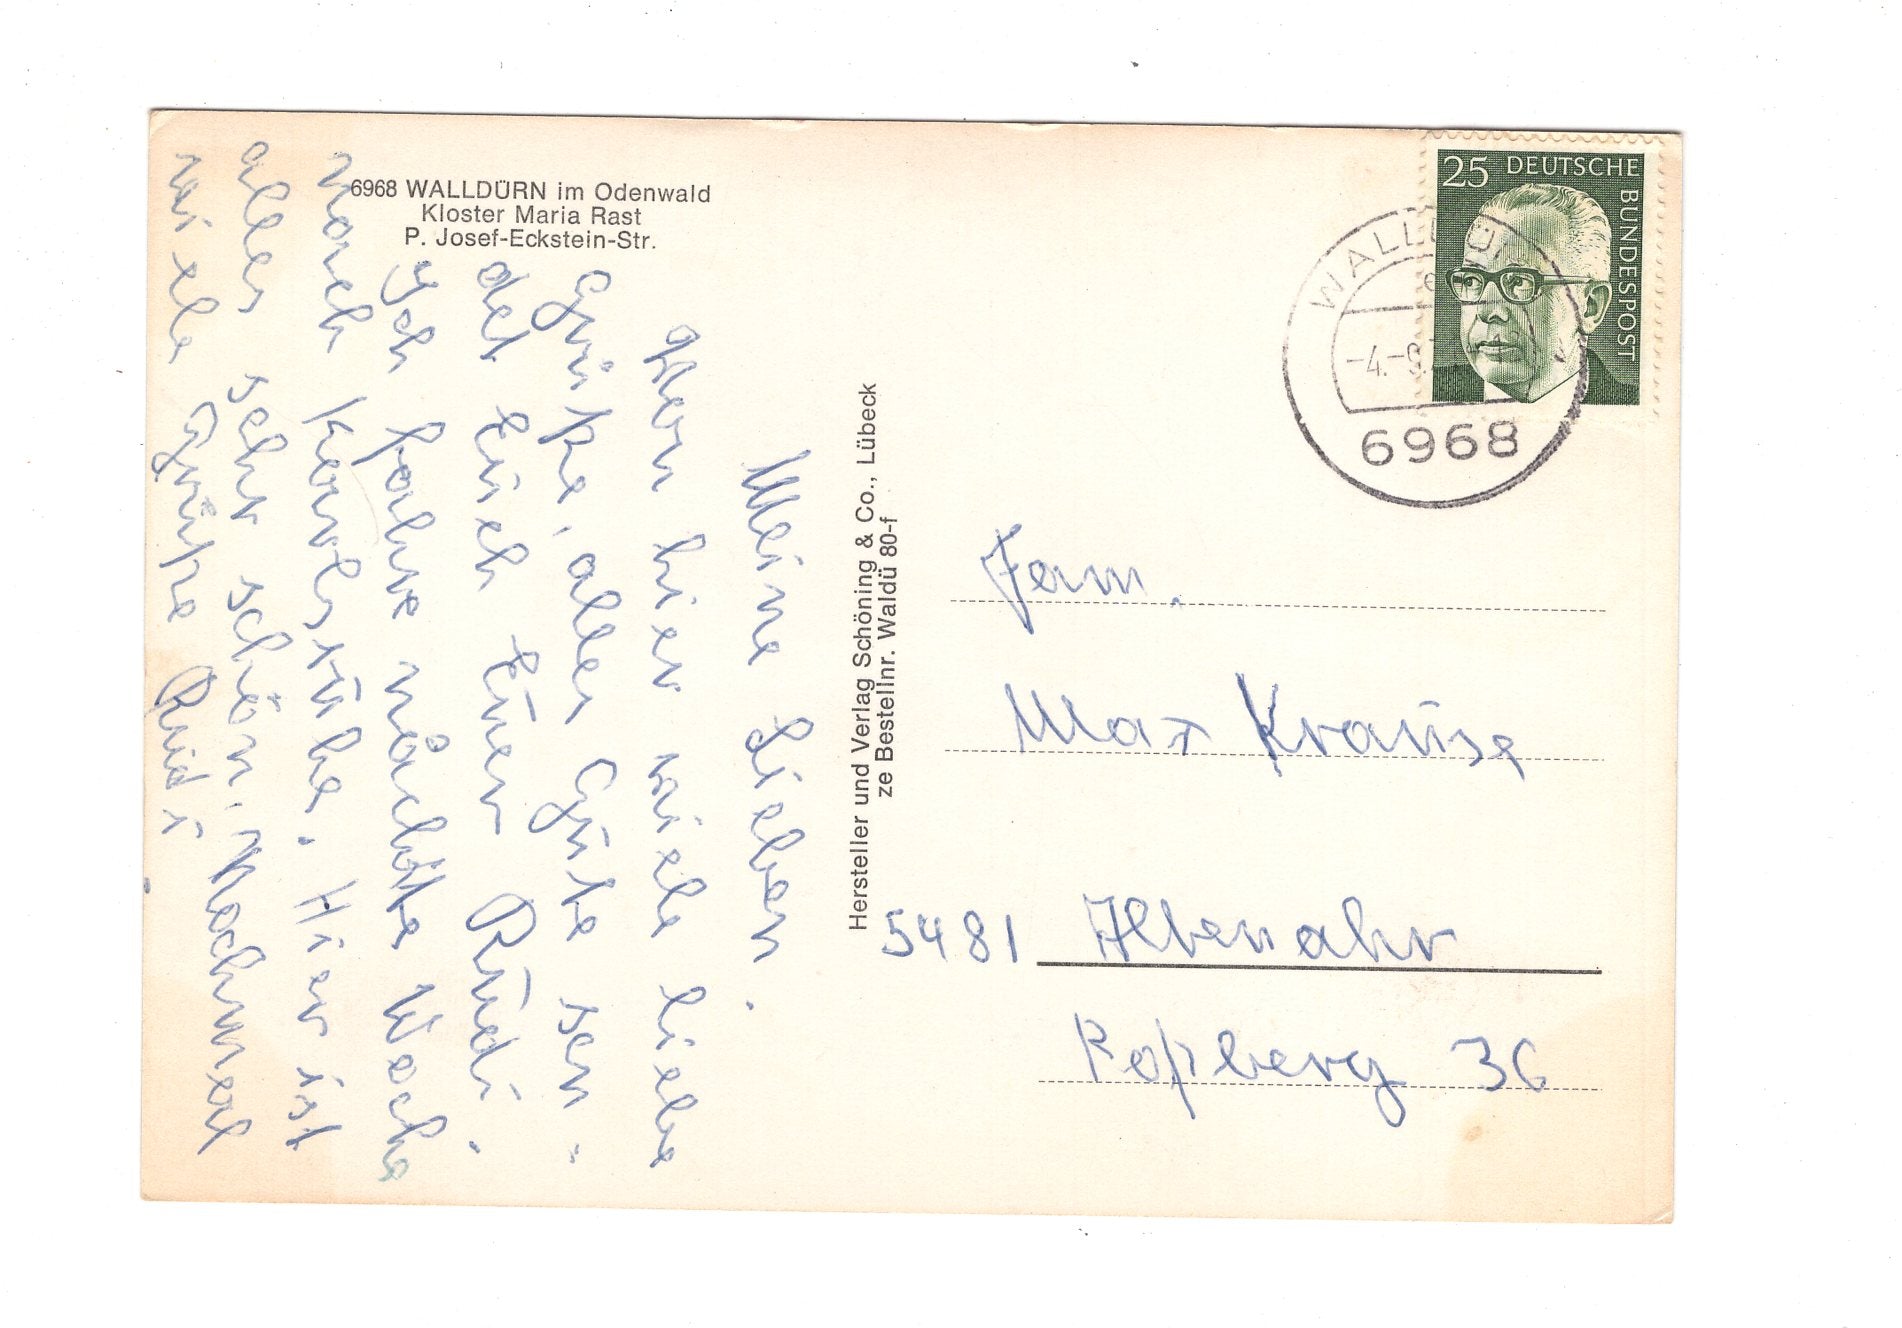 6968 WALLDÜRN im Odenwald
Kloster Maria Rast
P. Josef-Eckstein-Str.
Meine Lieben.
Von hier viele liebe
Grüße, alles Gute sen-
det Euch Euer Rudi.
Ich fahre nächste Woche
nach Karlsruhe. Hier ist
alles sehr schön. Nochmal
viele Grüße Rudi
Hersteller und Verlag Schöning & Co., Lübeck
ze Bestellnr. Waldü 80-f
25 DEUTSCHE
BUNDESPOST
WALLDÜ
-4.-9.
6968
Fam.
Max Krause
5481 Altenahr
Roßberg 36